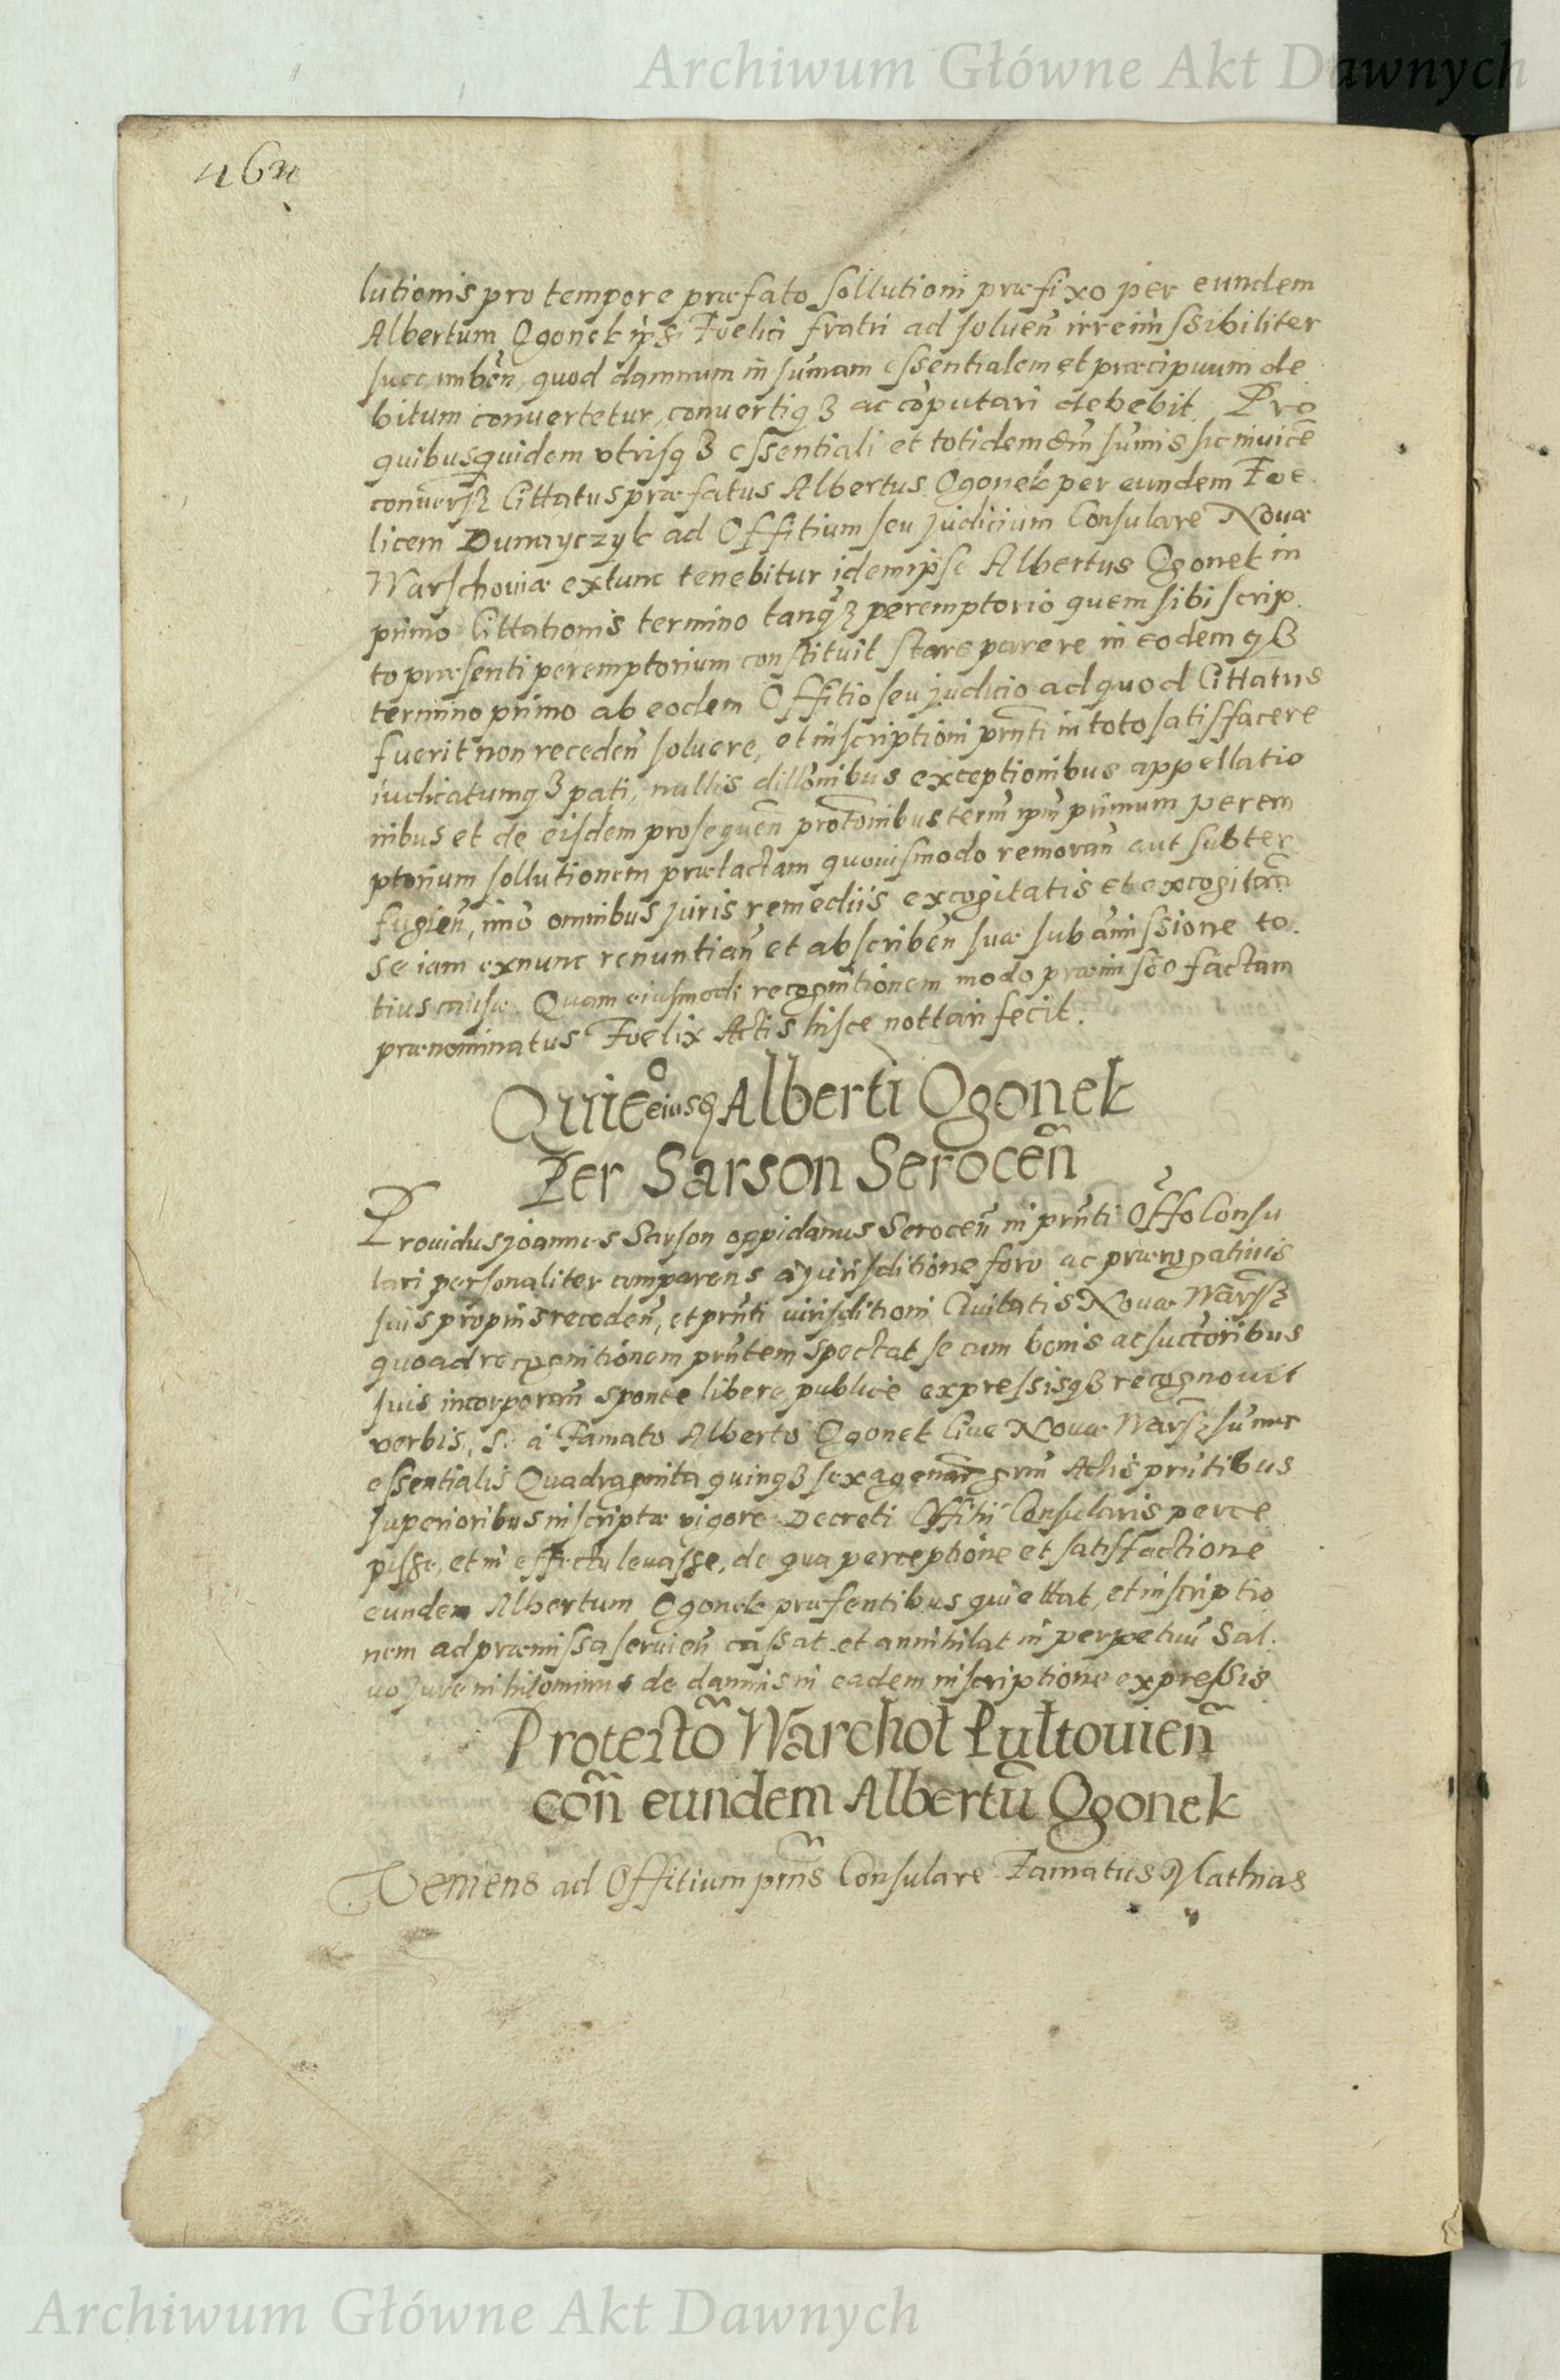 Archiwum Główne Akt Dawnych
lutionis pro tempore præfato sollutioni præfixo per eundem
Albertum Ogonek ipsi Foelici fratri ad soluen̄ irremissibiliter
succumben̄, quod damnum in sum̄am essentialem et præcipuum de
bitum conuertetur, conuertiqꝫ ac cōputari debebit Pro
quibusquidem vtrisqꝫ essentiali et totidem sum̄is sic inuicē
Cittatus præfatus Albertus Ogonek per eundem Foe
licem Dunayczyk ad Offitium seu judicium Consulare Nouæ
Warschouiæ extunc tenebitur idemipse Albertus Ogonek in
primo Cittationis termino tanq̄ꝫ peremptorio quem sibi scrip
to præsenti peremptorium constituit stare parere in eodemqꝫ
termino primo ab eodem Offitio seu judicio ad quod Cittatus
fuerit non receden̄ soluere, et inscriptioni prn̄ti in toto satisfacere
iudicatumqꝫ pati, nullis dillōnibus exceptionibus appellatio
nibus et de eisdem prosequen̄ protōnibus term̄ ipm̄ primum perem
ptorium sollutionem prætactam quouismodo remoran̄ aut subter
fugien̄, imo omnibus juris remediis excogitatis et excogitan̄
se iam exnunc renuntian̄ et abscriben̄ suæ sub amissione to
tius causæ. Quam eiusmodi recognitionem modo præmisso factam
prænominatus Foelix Actis hisce nottari fecit.
Quieᵒ eiusq Alberti Ogonek
Per Sarson Serocen̄
Prouidus joannes Sarson oppidanus Serocen̄ in prn̄ti Offo Consu
lari personaliter comparens a jurisditione foro ac prærogatiuis
suis propriis receden̄, et prn̄ti iurisditioni Ciuitatis Nouæ Warsꝫ
quoad recognitionem prn̄tem spectat se cum bonis ac succoribus
suis incorporan̄ sponte libere publice expressisqꝫ recognouit
verbis, se a Famato Alberto Ogonek Ciue Nouæ Warsꝫ sum̄æ
essentialis Quadraginta quinqꝫ sexagenar grm̄ Actis prn̄tibus
superioribus inscriptæ vigore Decreti Offitii Consularis perce
pisse, et in effectu leuasse, de qua perceptione et satisfactione
eundem Albertum Ogonek præsentibus quiettat, et inscriptio
nem ad præmissa seruien̄ cassat et annihilat in perpetuū Sal
uo jure nihilominus de damnis in eadem inscriptione expressis
Protestō Warchoł Pułtouien̄
con̄ eundem Albertū Ogonek
Veniens ad Offitium prn̄s Consulare Famatus Mathias
Archiwum Główne Akt Dawnych